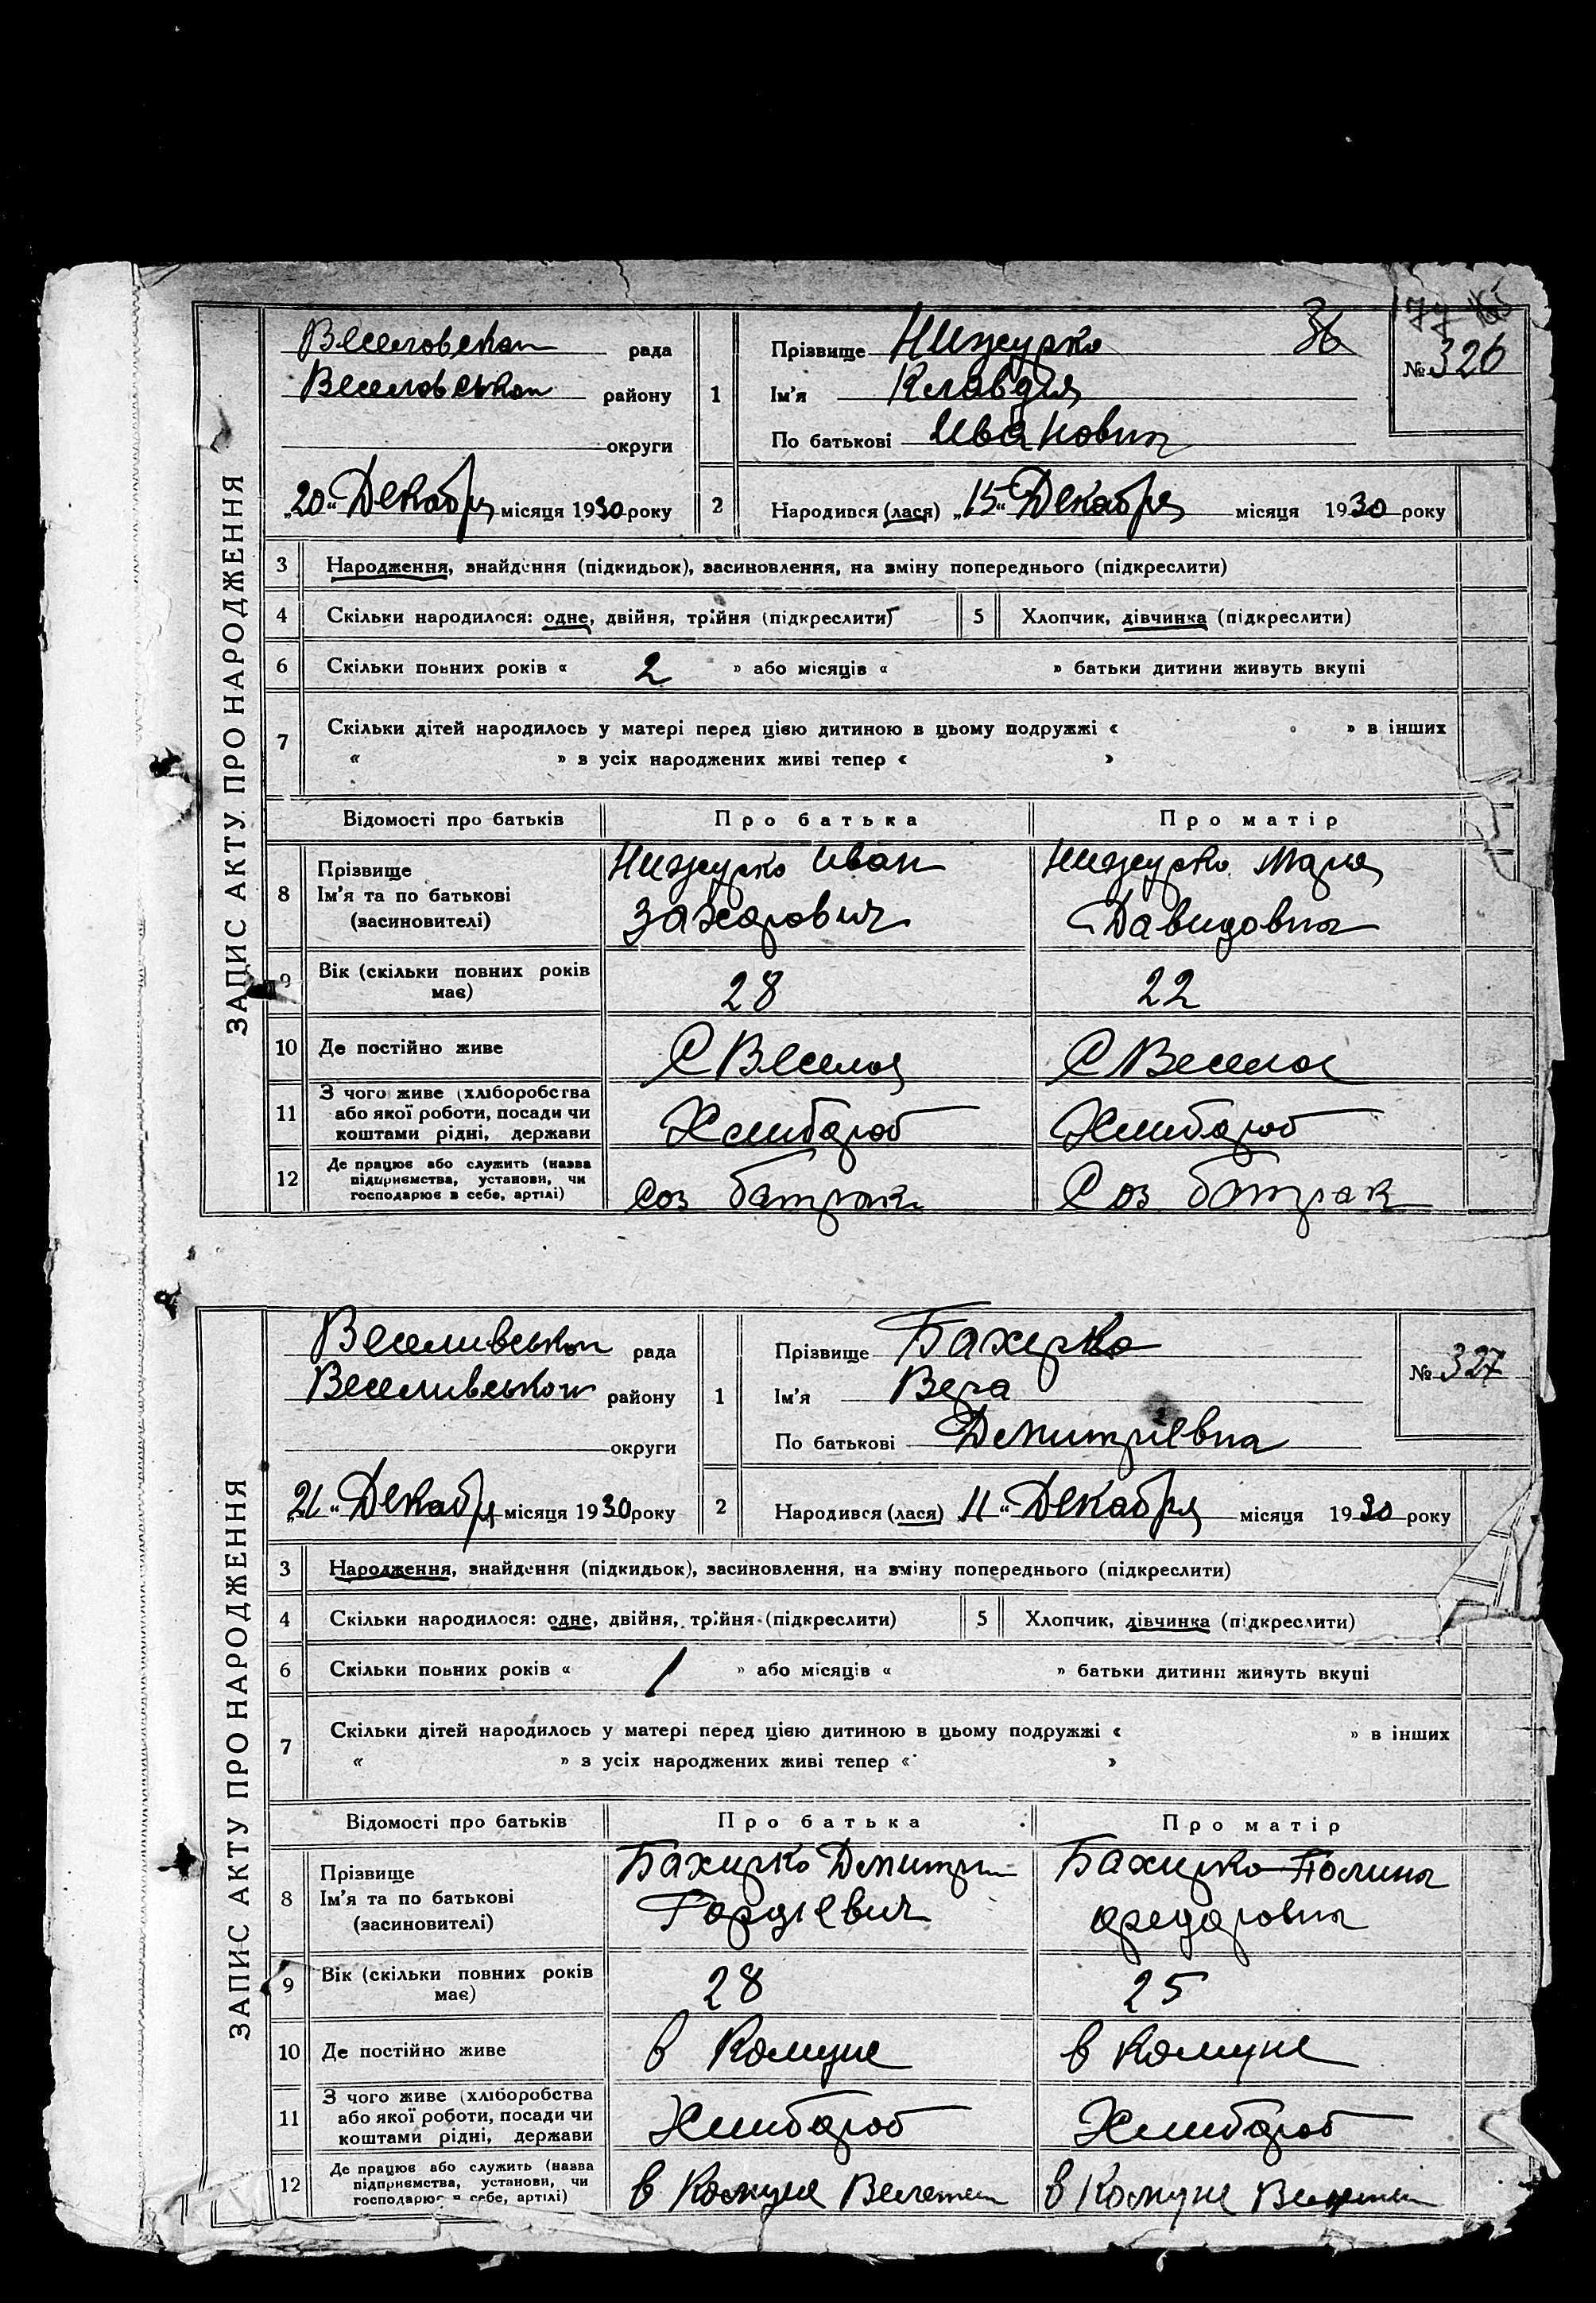 ЗАПИС АКТУ ПРО НАРОДЖЕННЯ
рада
району
округи
„20“ Декабря місяця 1930 року
1
Прізвище Нижурко 36
Ім'я Клавдия
По батькові Ивановна
№ 326
2
Народився (лася) „15“ Декабря місяця 1930 року
3 Народження, знайдення (підкидьок), засиновлення, на зміну попереднього (підкреслити)
4 Скільки народилося: одне, двійня, трійня (підкреслити) 5 Хлопчик, дівчинка (підкреслити)
6 Скільки повних років « 2 » або місяців « » батьки дитини живуть вкупі
7 Скільки дітей народилось у матері перед цією дитиною в цьому подружжі « » в інших
« » з усіх народжених живі тепер « »
Відомості про батьків Про батька Про матір
8 Прізвище Ім'я та по батькові (засиновителі)
Нижурко Иван Захарович
Нижурко Мария Давидовна
9 Вік (скільки повних років має) 28 22
10 Де постійно живе С Веселое С Веселое
11 З чого живе (хліборобства або якої роботи, посади чи коштами рідні, держави Хлиборoб Хлибороб
12 Де працює або служить (назва підприємства, установи, чи господарює в себе, артілі) Соз батрак Соз батрак
ЗАПИС АКТУ ПРО НАРОДЖЕННЯ
рада
району
округи
„21“ Декабря місяця 1930 року
1
Прізвище Бахирко
Ім'я Вера
По батькові Дмитриевна
№ 327
2
Народився (лася) „11“ Декабря місяця 1930 року
3 Народження, знайдення (підкидьок), засиновлення, на зміну попереднього (підкреслити)
4 Скільки народилося: одне, двійня, трійня (підкреслити) 5 Хлопчик, дівчинка (підкреслити)
6 Скільки повних років « 1 » або місяців « » батьки дитини живуть вкупі
7 Скільки дітей народилось у матері перед цією дитиною в цьому подружжі « » в інших
« » з усіх народжених живі тепер « »
Відомості про батьків Про батька Про матір
8 Прізвище Ім'я та по батькові (засиновителі)
Бахирко Дмитри Гордіевич
Бахирко Полина Федоровна
9 Вік (скільки повних років має) 28 25
10 Де постійно живе в Комуне в Комуне
11 З чого живе (хліборобства або якої роботи, посади чи коштами рідні, держави Хлибороб Хлибороб
12 Де працює або служить (назва підприємства, установи, чи господарює в себе, артілі) в Комуне в Комуне